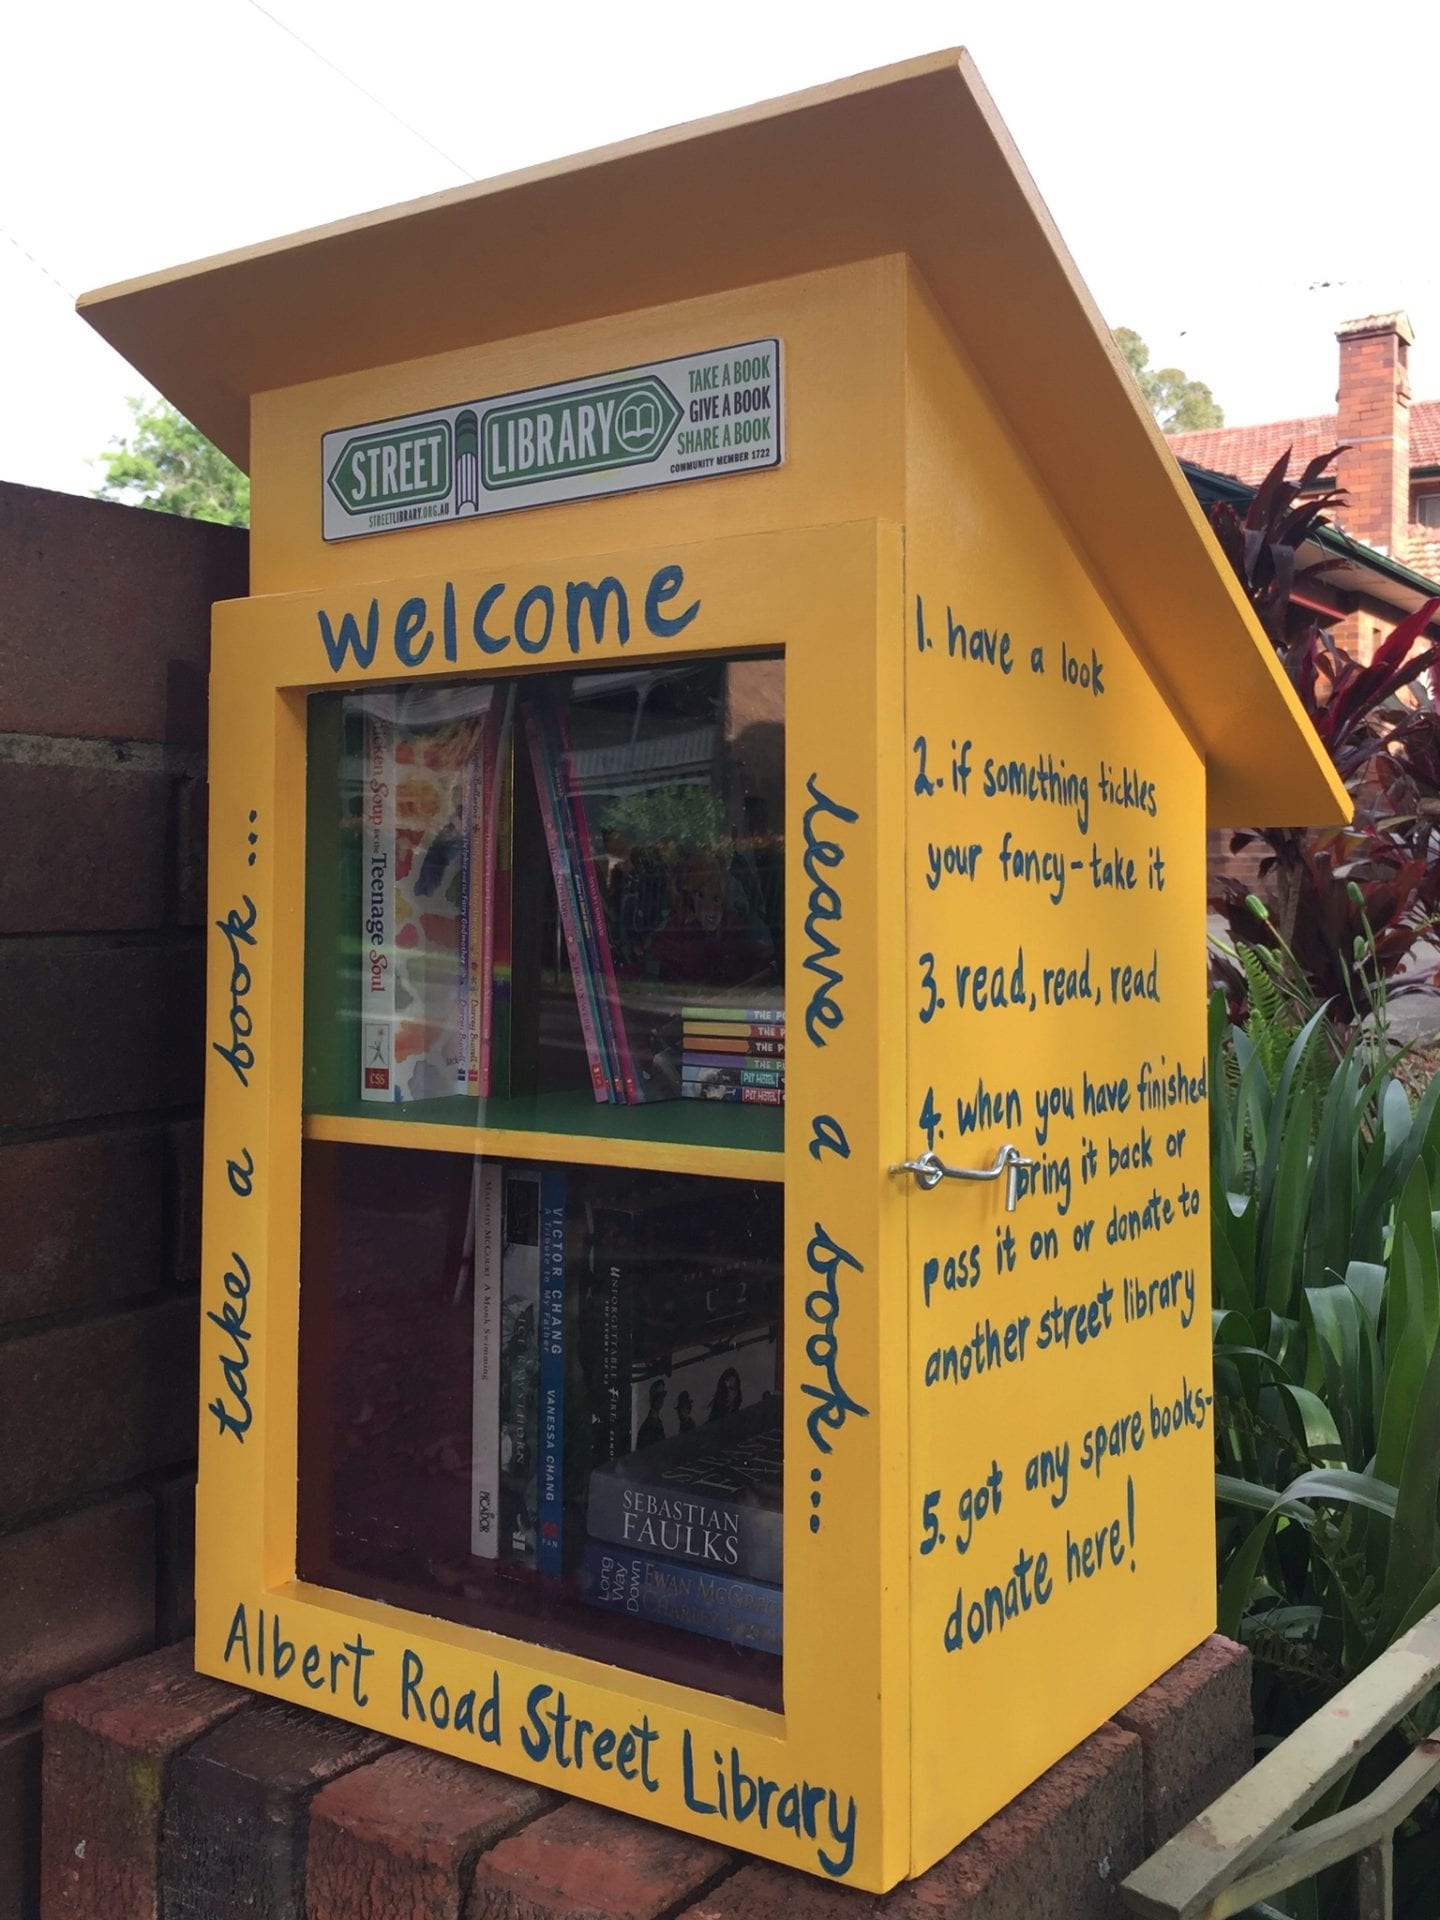 STREET LIBRARY
TAKE A BOOK
GIVE A BOOK
SHARE A BOOK
COMMUNITY MEMBER 1722
STREETLIBRARY.ORG.AU
welcome
take a book...
leave a book...
Albert Road Street Library
1. have a look
2. if something tickles
your fancy - take it
3. read, read, read
4. when you have finished
bring it back or
pass it on or donate to
another street library
5. got any spare books-
donate here!
Soup for the Teenage Soul
CSS
THE
THE
THE
THE
PET HOTEL
PET HOTEL
MALACHY MCCOURT A Monk Swimming
PICADOR
VICTOR CHANG
A Tribute to My Father
VANESSA CHANG
PAN
UNFORGETTABLE FIRE
U2
SEBASTIAN
FAULKS
Long
Way
Down
EWAN MCGREGOR